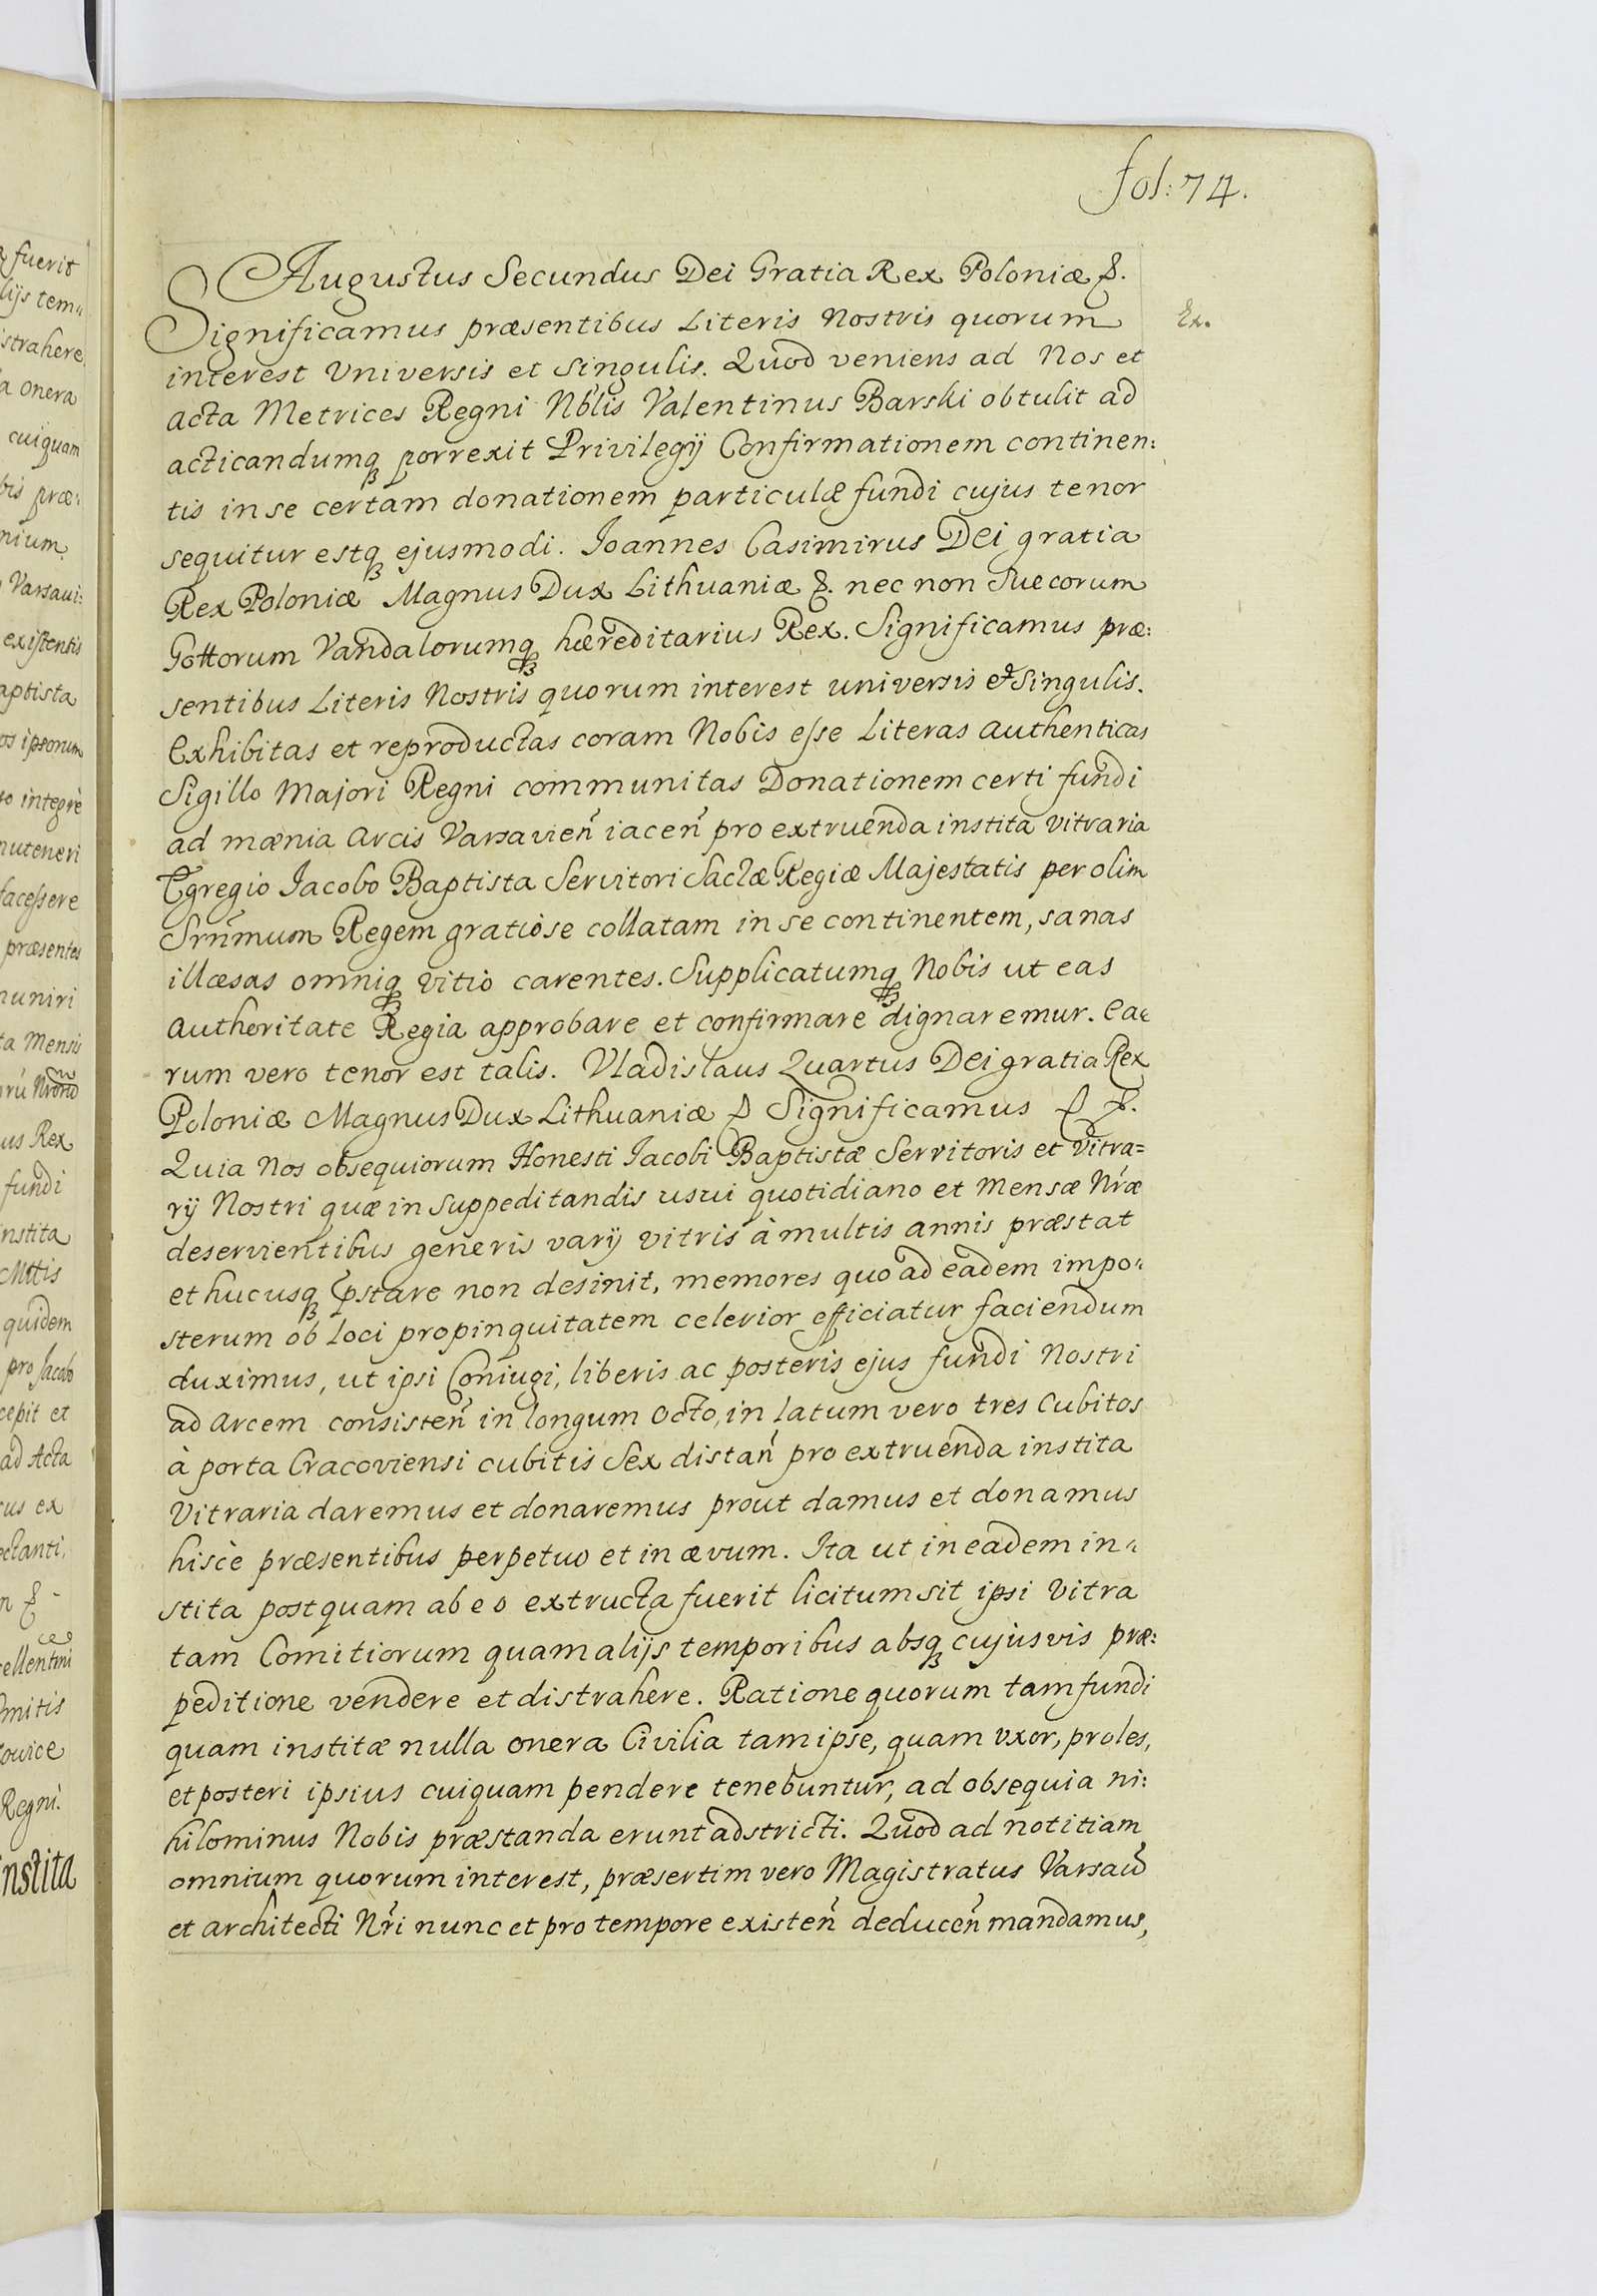 fol: 74.
Augustus Secundus Dei Gratia Rex Poloniæ &.
Significamus præsentibus Literis Nostris quorum
Ex.
interest Universis et Singulis. Quod veniens ad Nos et
acta Metrices Regni Nblis Valentinus Barski obtulit ad
acticandumq porrexit Privilegij Confirmationem continen:
tis in se certam donationem particulæ fundi cujus tenor
sequitur estq ejusmodi. Joannes Casimirus Dei gratia
Rex Poloniæ Magnus Dux Lithuaniæ &. nec non Suecorum
Gottorum Vandalorumq hæreditarius Rex. Significamus præ:
sentibus Literis Nostris quorum interest universis et Singulis.
Exhibitas et reproductas coram Nobis esse Literas authenticas
Sigillo Majori Regni communitas Donationem certi fundi
ad mænia Arcis Varsavien iacen pro extruenda instita vitraria
Egregio Jacobo Baptista Servitori Sacræ Regiæ Majestatis per olim
Srnmum Regem gratiòse collatam in se continentem, sanas
illæsas omniq vitio carentes. Supplicatumq Nobis ut eas
authoritate Regia approbare et confirmare dignaremur. Ea:
rum vero tenor est talis. Vladislaus Quartus Dei gratia Rex
Poloniæ Magnus Dux Lithuaniæ & Significamus & &.
Quia Nos obsequiorum Honesti Jacobi Baptistæ Servitoris et Vitra=
rij Nostri quæ in suppeditandis usui quotidiano et Mensæ Nræ
deservientibus generis varij vitris à multis annis præstat
et hucusq pstare non desinit, memores quo ad eadem impo:
sterum ob loci propinquitatem celerior efficiatur faciendum
duximus, ut ipsi Coniugi, liberis ac posteris ejus fundi Nostri
ad Arcem consisten in longum Octo, in latum vero tres Cubitos
à porta Cracoviensi cubitis Sex distan pro extruenda instita
Vitraria daremus et donaremus prout damus et donamus
hiscè præsentibus perpetuo et in ævum. Ita ut in eadem in:
stita postquam ab eo extructa fuerit licitum sit ipsi Vitra
tam Comitiorum quam alijs temporibus absq cujusvis præ:
peditione vendere et distrahere. Ratione quorum tam fundi
quam institæ nulla onera Civilia tam ipse, quam uxor, proles,
et posteri ipsius cuiquam pendere tenebuntur, ad obsequia ni:
hilominus Nobis præstanda erunt adstricti. Quod ad notitiam
omnium quorum interest, præsertim vero Magistratus Varsav
et architecti Nri nunc et pro tempore existen deducen mandamus,